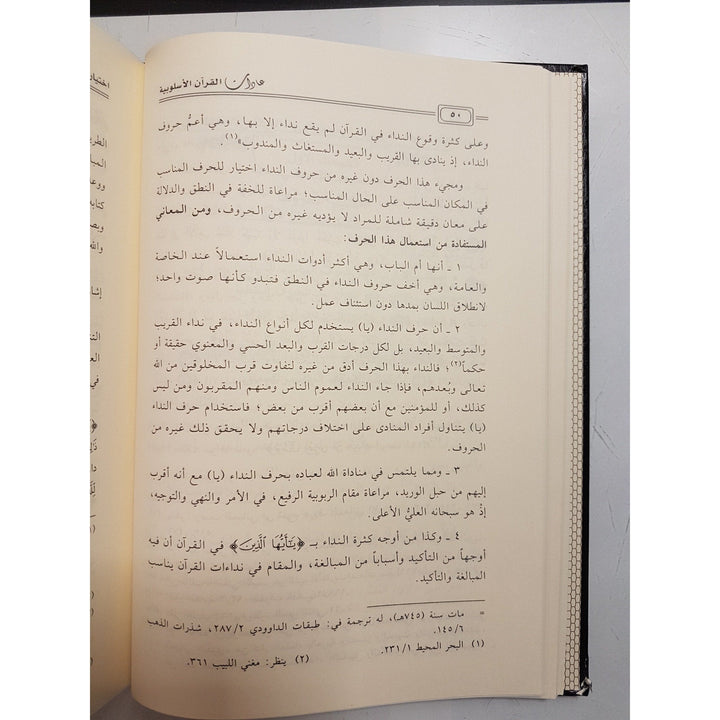 عادات القرآن الأسلوبية
٥٠
وعلى كثرة وقوع النداء في القرآن لم يقع نداء إلا بها، وهي أعمُّ حروف
النداء، إذ ينادى بها القريب والبعيد والمستغاث والمندوب»(١).
ومجيء هذا الحرف دون غيره من حروف النداء اختيار للحرف المناسب
في المكان المناسب على الحال المناسب؛ مراعاة للخفة في النطق والدلالة
على معان دقيقة شاملة للمراد لا يؤديه غيره من الحروف، ومن المعاني
المستفادة من استعمال هذا الحرف:
١ ـ أنها أم الباب، وهي أكثر أدوات النداء استعمالاً عند الخاصة
والعامة، وهي أخف حروف النداء في النطق فتبدو كأنها صوت واحد؛
لانطلاق اللسان بمدها دون استئناف عمل.
٢ ـ أن حرف النداء (يا) يستخدم لكل أنواع النداء، في نداء القريب
والمتوسط والبعيد، بل لكل درجات القرب والبعد الحسي والمعنوي حقيقة أو
حكماً(٢)؛ فالنداء بهذا الحرف أدق من غيره لتفاوت قرب المخلوقين من الله
تعالى وبُعدهم، فإذا جاء النداء لعموم الناس ومنهم المقربون ومن ليس
كذلك، أو للمؤمنين مع أن بعضهم أقرب من بعض؛ فاستخدام حرف النداء
(يا) يتناول أفراد المنادى على اختلاف درجاتهم ولا يحقق ذلك غيره من
الحروف.
٣ ـ ومما يلتمس في مناداة الله لعباده بحرف النداء (يا) مع أنه أقرب
إليهم من حبل الوريد، مراعاة مقام الربوبية الرفيع، في الأمر والنهي والتوجيه،
إذْ هو سبحانه العليُّ الأعلى.
٤ ـ وكذا من أوجه كثرة النداء بـ ﴿يَٰٓأَيُّهَا ٱلَّذِينَ﴾ في القرآن أن فيه
أوجهاً من التأكيد وأسباباً من المبالغة، والمقام في نداءات القرآن يناسب
المبالغة والتأكيد.
= مات سنة (٧٤٥هـ)، له ترجمة في: طبقات الداوودي ٢٨٧/٢، شذرات الذهب
١٤٥/٦.
(١) البحر المحيط ٢٣١/١. (٢) ينظر: مغني اللبيب ٣٦١.